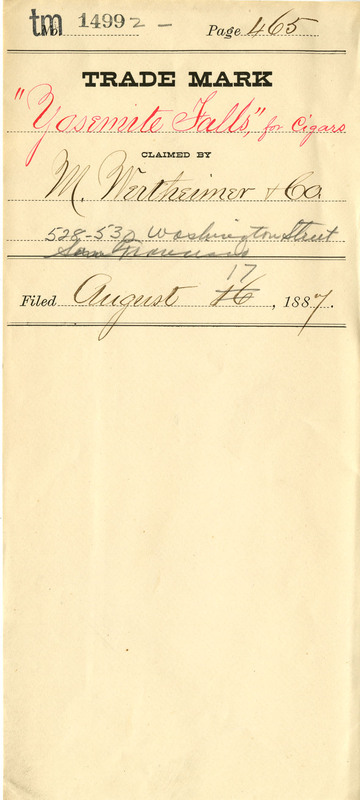 tm No. 14992 — Page 465
TRADE MARK
"Yosemite Falls," for Cigars
CLAIMED BY
M. Wertheimer & Co.
528-532 Washington Street
San Francisco
17
Filed August 16, 1887.